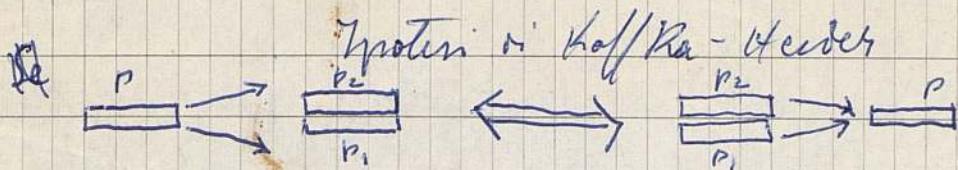 Ipotesi di Koffka - Heider
P P2 P2 P
P1 P1